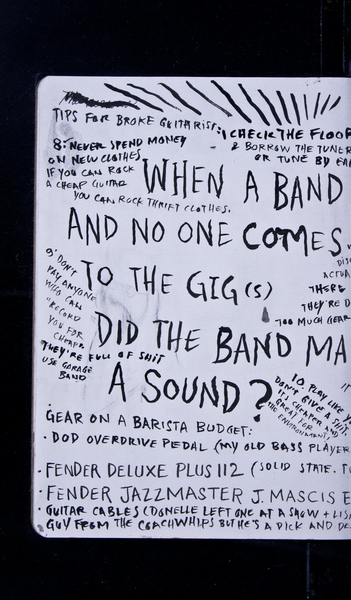 TIPS FOR BROKE GUITARIST:
1 CHECK THE FLOOR
& BORROW THE TUNER
OR TUNE BY EAR
8: NEVER SPEND MONEY
ON NEW CLOTHES
IF YOU CAN ROCK
A CHEAP GUITAR
YOU CAN ROCK THRIFT CLOTHES.
WHEN A BAND
AND NO ONE COMES
TO THE GIG(S)
DID THE BAND MA
A SOUND?
9: DON'T
PAY ANYONE
WHO CAN
"RECORD
YOU FOR
CHEAP"
THEY'RE FULL OF SHIT
USE GARAGE
BAND
DISC
ACTUA
THERE
THEY'RE D
TOO MUCH GEAR
10. PLAY LIKE YO
DON'T GIVE A SHIT.
IT'S CHEAPER AND
GREAT FOR
THE ENVIRONMENT!
GEAR ON A BARISTA BUDGET:
· DOD OVERDRIVE PEDAL (MY OLD BASS PLAYER
· FENDER DELUXE PLUS 112 (SOLID STATE. TO
· FENDER JAZZMASTER J. MASCIS E
· GUITAR CABLES (DONELLE LEFT ONE AT A SHOW + LISA
GUY FROM THE COACHWHIPS BUT HE'S A DICK AND DE